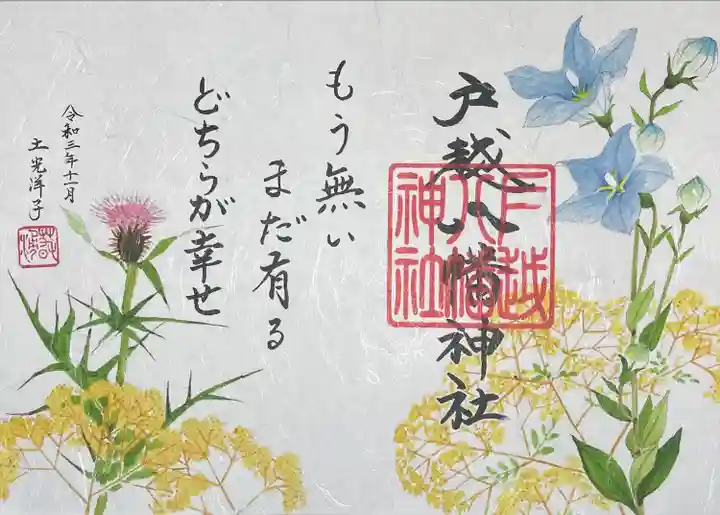 戸越八幡神社
戸越
八幡
神社
もう無い
まだ有る
どちらが幸せ
令和三年十一月
土光洋子